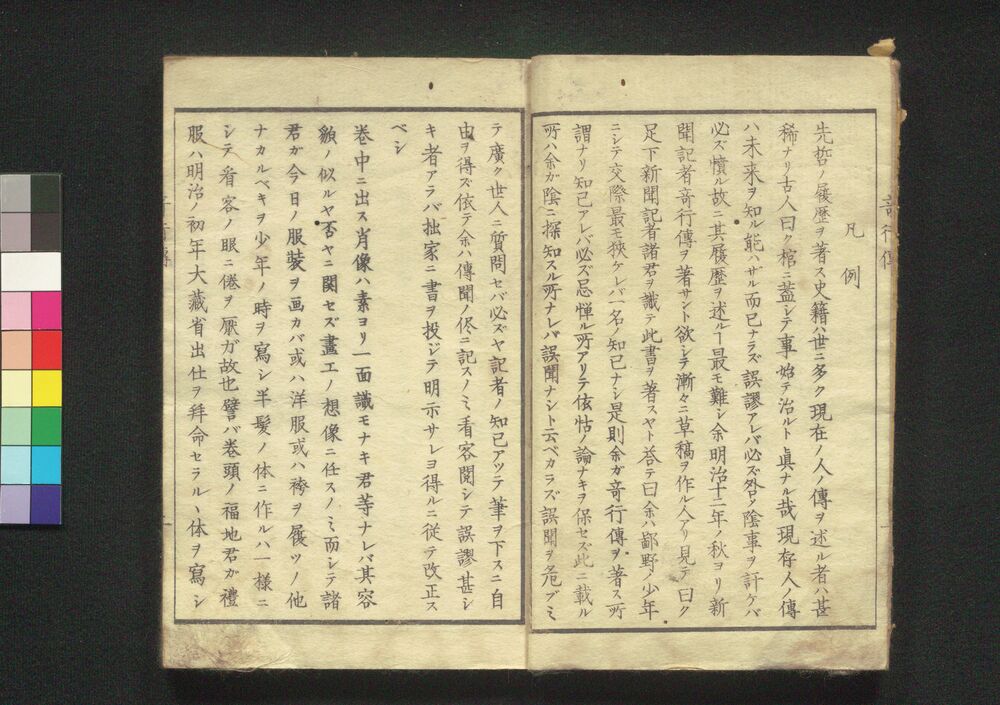 凡例
先哲ノ履歴ヲ著ス史籍ハ世ニ多ク現在ノ人ノ傳ヲ述ル者ハ甚
稀ナリ古人曰ク棺ニ蓋シテ事始テ治ルト眞ナル哉現存人ノ傳
ハ未来ヲ知ル能ハザル而已ナラズ誤謬アレバ必ズ咎メ陰事ヲ訐ケバ
必ズ憤ル故ニ其履歴ヲ述ルヿ最モ難シ余明治十二年ノ秋ヨリ新
聞記者竒行傳ヲ著サント欲シテ漸々ニ草稿ヲ作ル人アリ見テ曰ク
足下新聞記者諸君ヲ識テ此書ヲ著スヤト荅テ曰余ハ鄙野ノ少年
ニシテ交際最モ狹ケレバ一名ノ知已ナシ是則余ガ竒行傳ヲ著ス所
謂ナリ知已アレバ必ズ忌憚ル所アリテ依怙ノ論ナキヲ保セズ此ニ載ル
所ハ余ガ陰ニ探知スル所ナレバ誤聞ナシト云ベカラズ誤聞ヲ危ブミ
テ廣ク世人ニ質問セバ必ズヤ記者ノ知已アツテ筆ヲ下スニ自
由ヲ得ズ依テ余ハ傳聞ノ侭ニ記スノミ看客閲シテ誤謬甚シ
キ者アラバ拙家ニ書ヲ投ジテ明示サレヨ得ルニ従テ改正ス
ベシ
巻中ニ出ス肖像ハ素ヨリ一面識モナキ君等ナレバ其容
貌ノ似ルヤ否ヤニ関セズ畫工ノ想像ニ任スノミ而シテ諸
君ガ今日ノ服裝ヲ画カバ或ハ洋服或ハ袴ヲ履ツノ他
ナカルベキヲ少年ノ時ヲ寫シ半髪ノ体ニ作ルハ一様ニ
シテ看客ノ眼ニ倦ヲ厭ガ故也譬バ巻頭ノ福地君ガ禮
服ハ明治ノ初年大藏省出仕ヲ拜命セラルヽ体ヲ寫シ